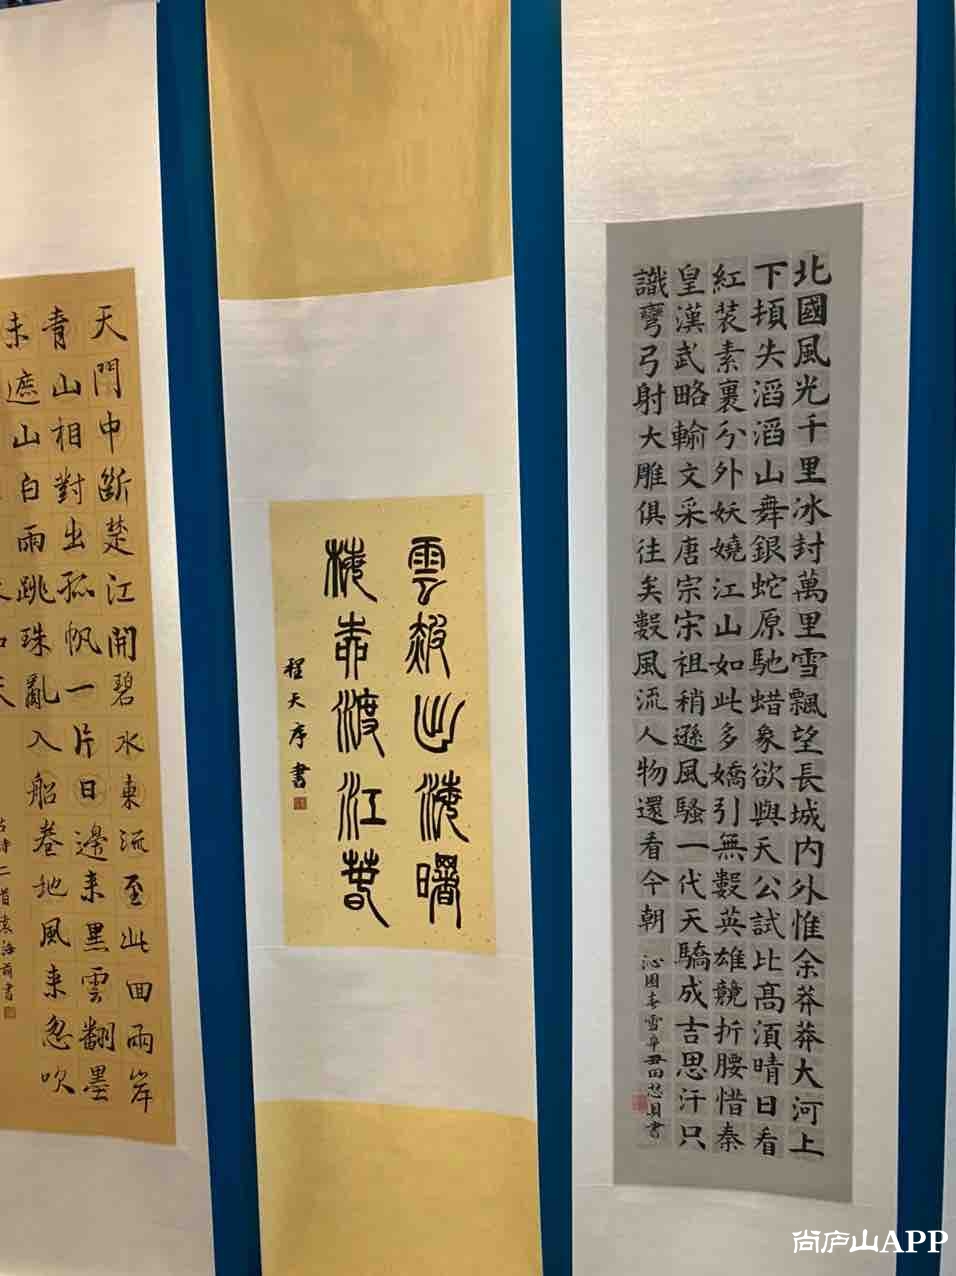 北國風光千里冰封萬里雪飄望長城内外惟余莽莽大河上
下頓失滔滔山舞銀蛇原馳蜡象欲與天公試比髙須晴日看
紅装素裹分外妖嬈江山如此多嬌引無數英雄競折腰惜秦
皇漢武略輸文采唐宗宋祖稍遜風騷一代天驕成吉思汗只
識彎弓射大雕俱往矣數風流人物還看今朝
沁園春雪 書
雲霞出海曙
梅柳渡江春
程天序書
天門中斷楚江開碧水東流至此回兩岸
青山相對出孤帆一片日邊来黑雲翻墨
未遮山白雨跳珠亂入船卷地風来忽吹
二首袁海 書
尚庐山APP